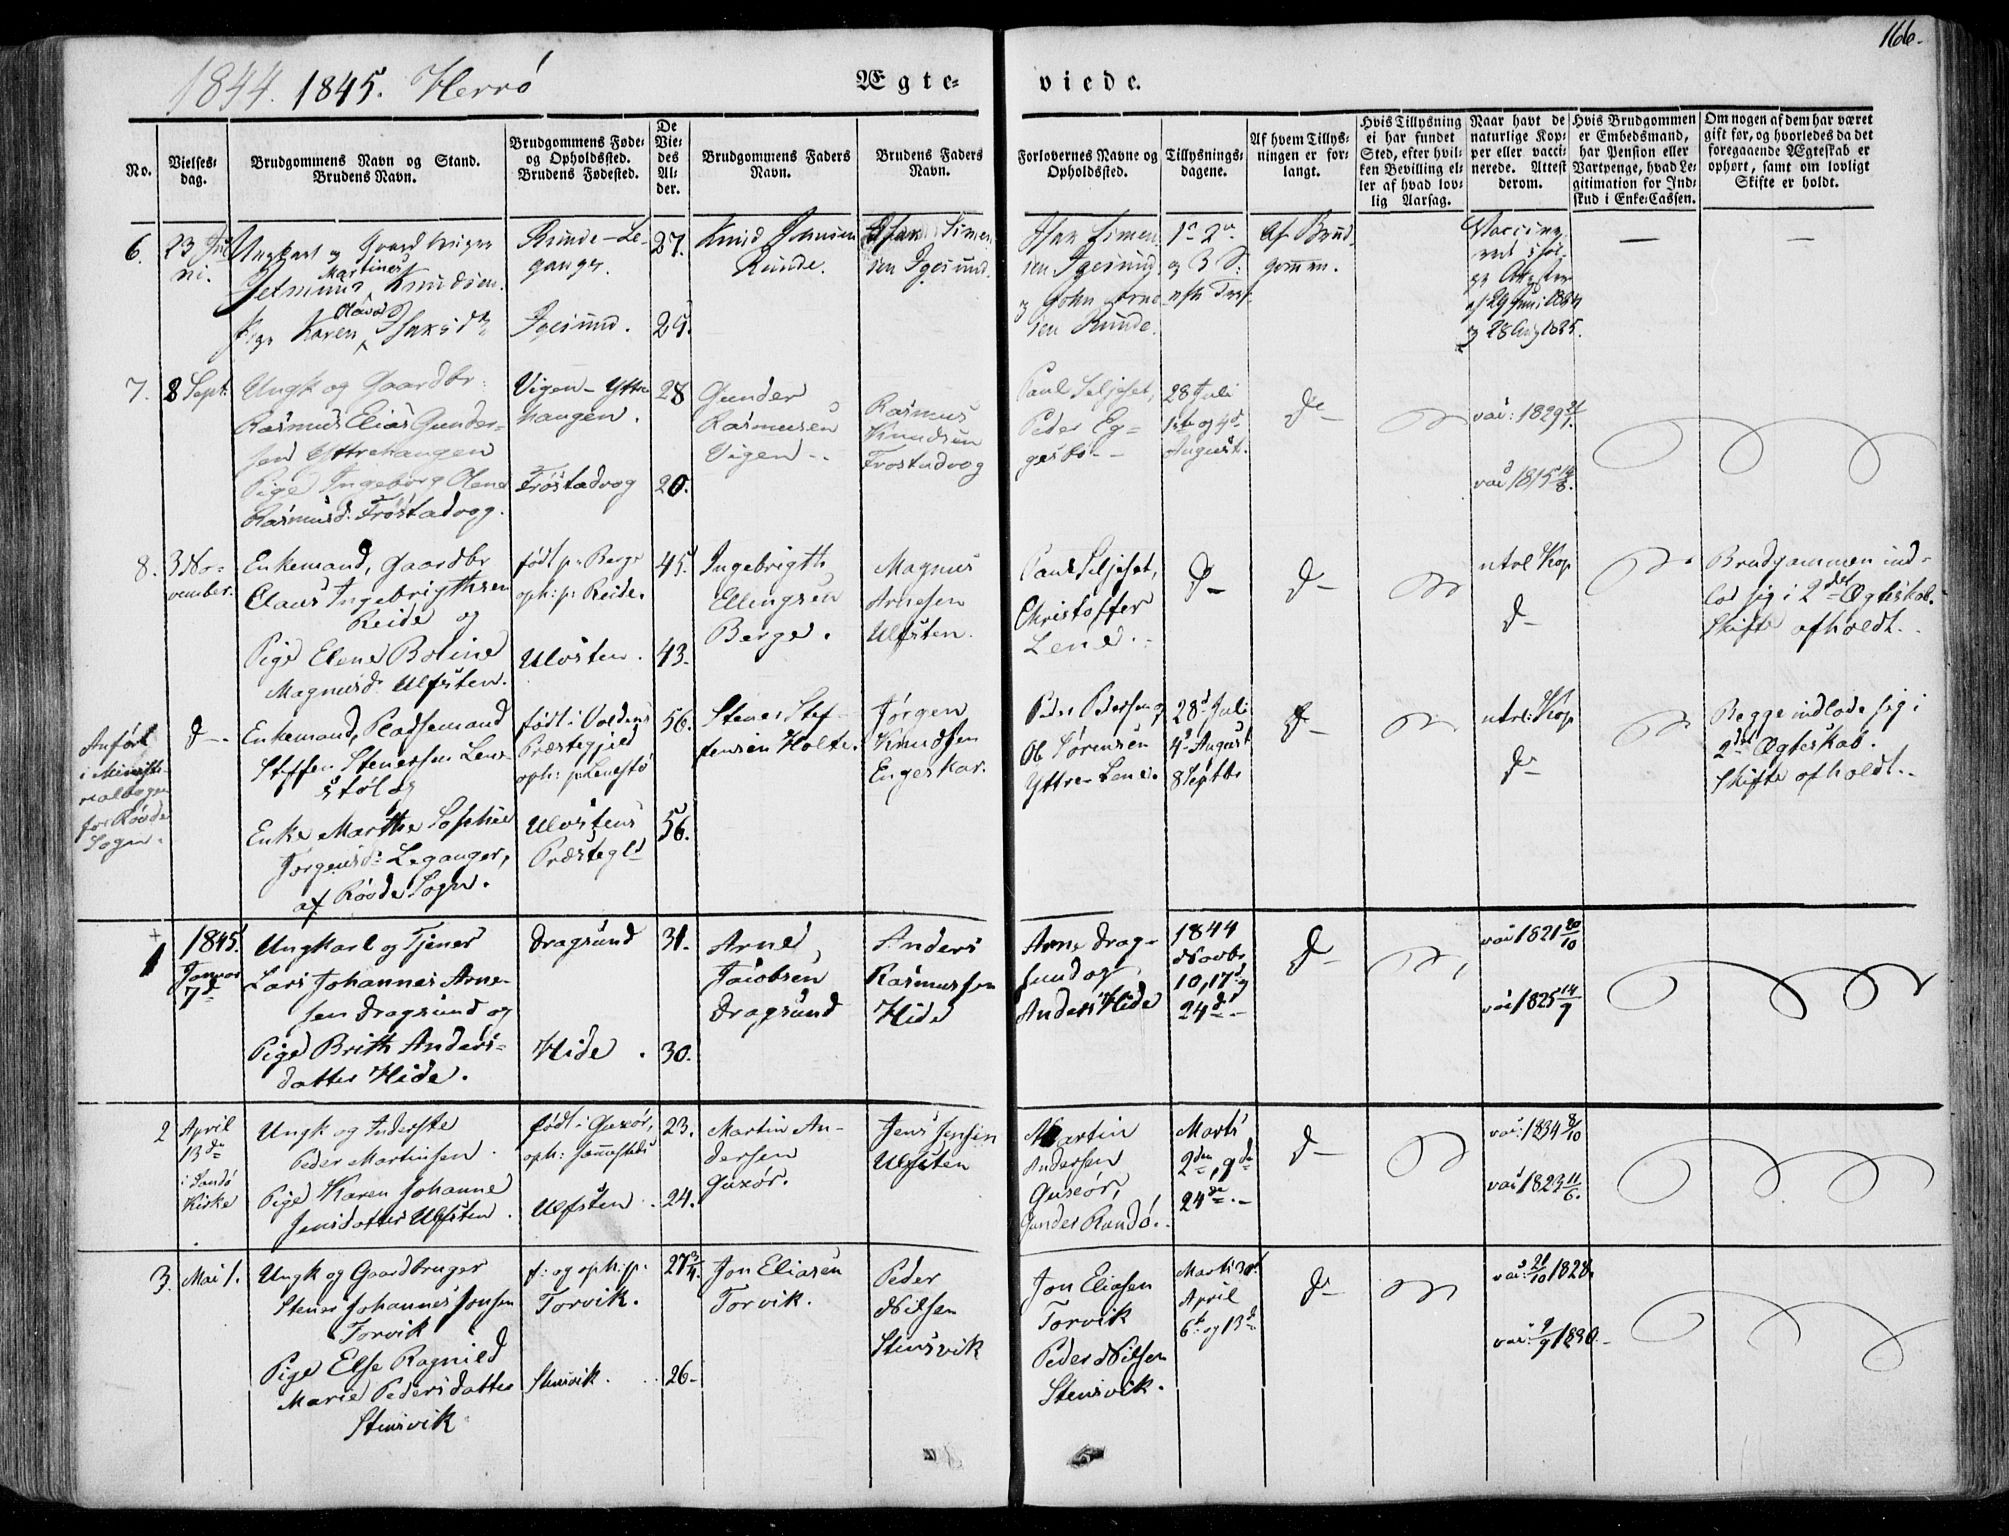 166.
1844. 1845. Herrö
Ægte-
viede.
No.
Vielses-
dag.
Brudgommens Navn og Stand.
Brudens Navn.
Brudgommens Føde-
og Opholdssted.
Brudens Fødested.
De
Vie-
des
Al-
der.
Brudgommens Faders
Navn.
Brudens Faders
Navn.
Forlovernes Navne og
Opholdssted.
Tillysnings-
dagene.
Af hvem Tillys-
ningen er for-
langt.
Hvis Tillysning
ei har fundet
Sted, efter hvil-
ken Bevilling el-
ler af hvad lov-
lig Aarsag.
Naar havt de
naturlige Kop-
per eller vacci-
nerede. Attest
derom.
Hvis Brudgommen
er Embedsmand,
har Pension eller
Vartpenge, hvad Le-
gitimation for Ind-
skud i Enke-Cassen.
Om nogen af dem har været
gift før, og hvorledes da det
foregaaende Ægteskab er
ophørt, samt om lovligt
Skifte er holdt.
6.
23 Ju
ni.
Ungkarl og Gaardbruger
Martinus
Knudsen.
Pige Karen Isaksd
Runde - Le-
ganger.
Igesund.
27.
Knud
Runde.
Isak Simen-
sen Igesund.
Isak Simen-
sen Igesund
og John
sen Runde.
og 3 S:
Af Brud-
gommen.
Vaccine-
af 29 Juni 1864
og 28 Aug 1825.
7.
8 Sept.
Ungk og Gaardbr:
Rasmus Elias Gunder-
sen Yttrehaugen
Pige Ingeborg Olene
Rasmusd: Fröstadvog.
Vigen - Yttre
haugen.
Fröstadvog
28
20.
Gunder
Rasmusen
Vigen -
Rasmus
Knudsen
Frostadvog
Paul Seljeset,
Peder Eg-
gesbö -
28 Juli
1ste og 4d
August.
d-
vac: 1829 21/1.
vac 1815 14/8.
8.
3 No-
vember.
Enkemand, Gaardbr
Claus Ingebrigthsen
Reide og
Pige Elene Boline
Magnusd: Ulfsten.
født p: Berge
oph: p: Reide.
Ulvsten.
45.
43.
Ingebrigth
Ellingsen
Berge.
Magnus
Arnesen
Ulfsten.
Paul Seljeset,
Christoffer
Lene.
d-
d-
ntrl Kop
d-
Brudgommen ind-
lod sig i 2det Ægteskab.
Skifte afholdt.
Anført
i Ministe-
rialbogen
for Røvde
Sogn.
d-
Enkemand, Pladsemand
Steffen Stenersen Lene-
støl og
Enke Marthe Sophie
Jørgensd: Leganger,
af Røvde Sogn.
født i Voldens
Præstegjeld
oph: p: Lenestø
Ulvstens
Præstegld
56.
56.
Stener Stef-
fensen Holte.
Jørgen
Knudsen
Engeskar.
Peder Pedersen og
Ol Sørensen
Yttre Lene.
28d Juli
4d August
8 Septbr
d-
ntrl: Kop
d-
Begge indlode sig i
2det Ægteskab.
Skifte afholdt.
1
1845.
Januar
7d
Ungkarl og Tjener
Lars Johannes Arne-
sen Dragsund og
Pige Brith Anders-
datter Hide.
Dragsund
Hide.
31.
30.
Arne
Jacobsen
Dragsund
Anders
Rasmussen
Hide
Arne Drag-
sund og
Anders Hide
1844
Novbr
10, 17d og
24d -
d-
vac 1821 20/10
vac 1825 14/9
2
April
13de
i Sandö
Kirke
Ungk og Inderste
Peder Martinsen.
Pige Karen Johanne
Jensdatter Ulfsten.
født i Guxør,
oph:
Ulfsten.
23.
24.
Martin An-
dersen
Guxør.
Jens Jensen
Ulfsten
Martin
Andersen
Guxør,
Gunder Randö.
Marts
2den, 9de
24de -
d-
vac: 1834 8/10
vac 1823 11/6.
3.
Mai 1.
Ungk og Gaardbruger
Stener Johannes Jonsen
Torvik
Pige Else Ragnild
Marie Pedersdatter
Stensvik
f: og oph: p:
Torvik.
Stensvik.
27 3/4.
26-
Jon Eliasen
Torvik.
Peder
Nilsen
Stensvik
Jon Eliasen
Torvik
Peder Nilsen
Stensvik.
Marts 30
April
6te og 13de
d-
vac: 21/10 1828.
vac: 9/9 1830.